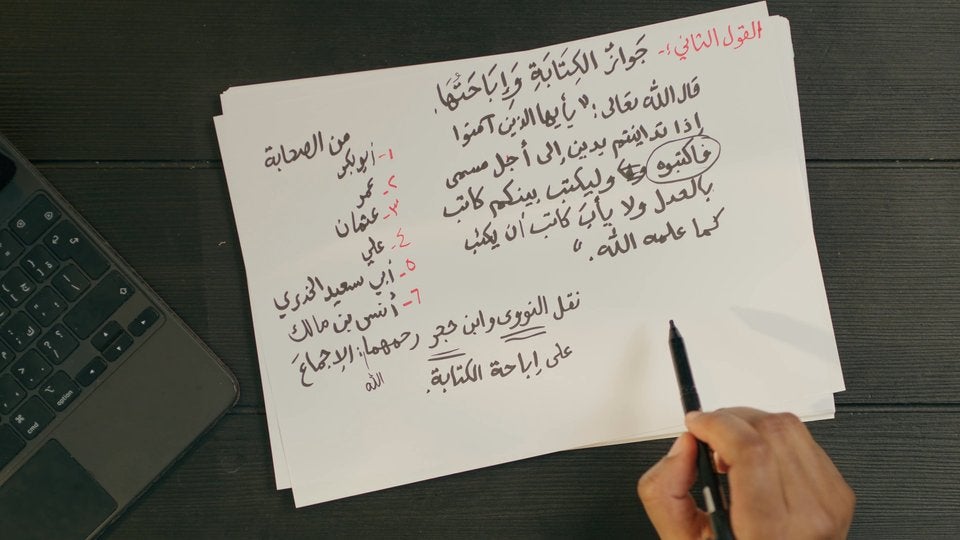 القول الثاني:-
جَوازُ الكِتَابَةِ وَإِبَاحَتُهَا.
قال الله تعالى: "يأيها الذين آمنوا
إذا تداينتم بدين إلى أجل مسمى
فاكتبوه وليكتب بينكم كاتب
بالعدل ولا يأبَ كاتب أن يكتب
كما علمه الله."
من الصحابة
١- أبو بكر
٢- عمر
٣- عثمان
٤- علي
٥- أبي سعيد الخدري
٦- أنس بن مالك
نقل النووي وابن حجر رحمهما الله: الإجماعَ
على إباحة الكتابة.
cmd
option